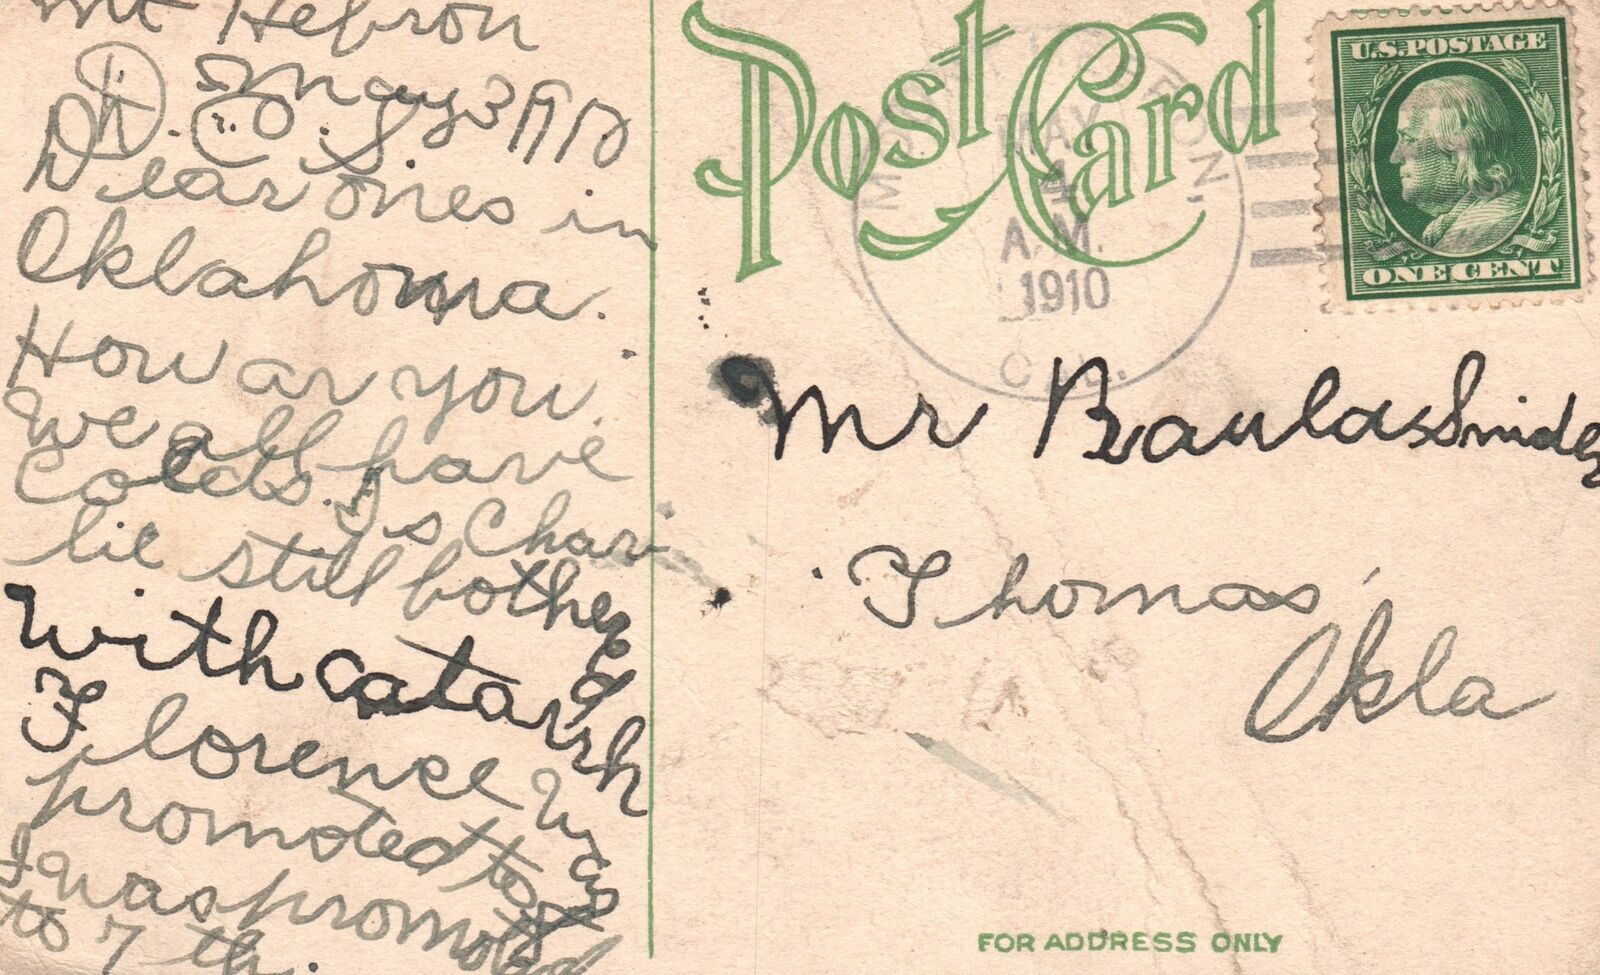 Mt Hebron
May 3 1910
Dear ones in
Oklahoma.
How ar you.
We all have
Colds. Is Char
lie still bothe
red
with catarrh
Florence was
promoted to
I was promoted
to 7 th.
Post Card
MAY
4
A.M.
1910
CAL.
U.S. POSTAGE
ONE CENT
Mr Baulas Snider
Thomas,
Okla
FOR ADDRESS ONLY